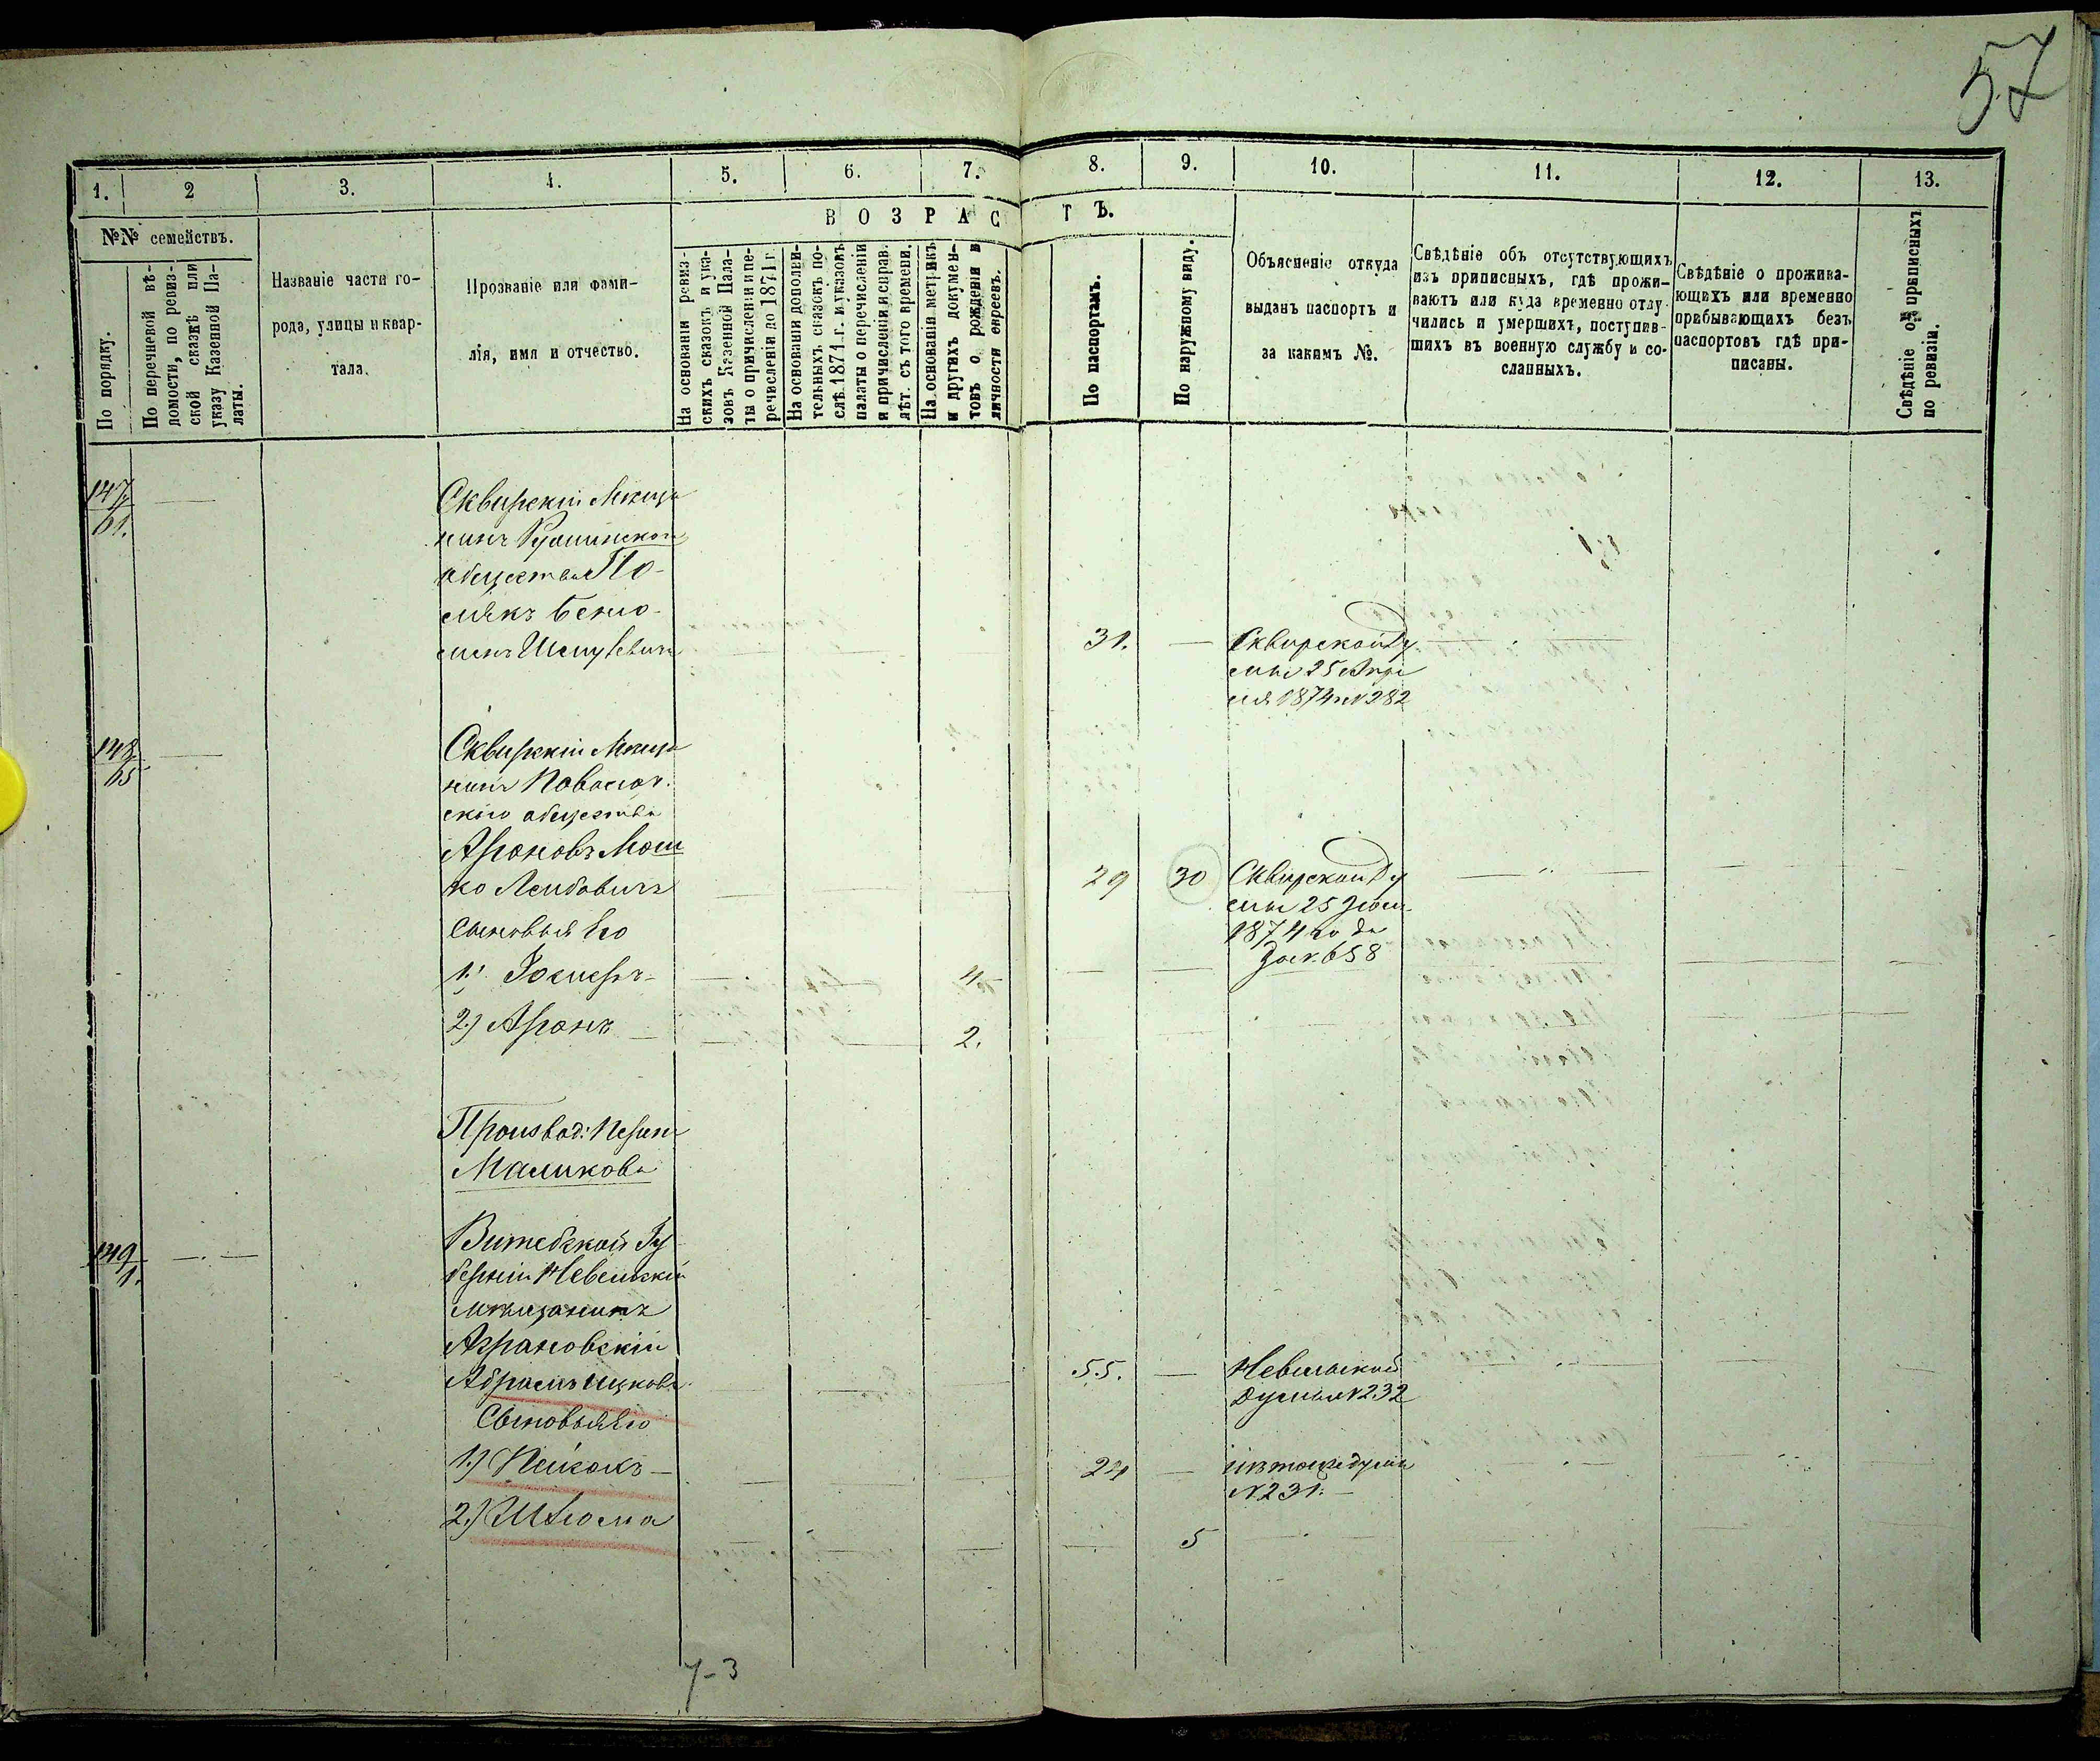 57
1. 2 3. 4. 5. 6. 7. 8. 9. 10. 11. 12. 13.
№№ семействъ.
По порядку.
По перечневой вѣ-
домости, по ревиз-
ской сказкѣ или
указу Казенной Па-
латы.
Названіе части го-
рода, улицы и квар-
тала.
Прозваніе или фами-
лія, имя и отчество.
ВОЗРАСТЪ.
На основаніи ревиз-
скихъ сказокъ и ука-
зовъ Казенной Пала-
ты о причисленіи и пе-
речисленіи до 1871 г.
На основаніи дополни-
тельныхъ сказокъ по-
слѣ 1871 г. и указовъ
палаты о перечисленіи
и причисленіи и справ.
лѣт. съ того времени.
На основаніи метрикъ
и другихъ докумен-
товъ о рожденіи и
личности евреевъ.
По паспортамъ.
По наружному виду.
Объясненіе откуда
выданъ паспортъ и
за какимъ №.
Свѣдѣніе объ отсутствующихъ
изъ приписныхъ, гдѣ прожи-
ваютъ или куда временно отлу-
чились и умершихъ, поступив-
шихъ въ военную службу и со-
сланныхъ.
Свѣдѣніе о прожива-
ющихъ или временно
пребывающихъ безъ
паспортовъ гдѣ при-
писаны.
Свѣдѣніе о приписныхъ
по ревизіи.
147
Сквирскій Мѣща
нинъ
общества По-
лякъ Бенио-
минъ Шмулевичъ
31.
Сквирской Ду
мы 25 Апрѣ
ля 1874 № 282
148
65
Сквирскій Мѣща
нинъ
скаго общества
Ароновъ Мош
ко Лейбовичъ
29 30
Сквирской Ду
мы 25
1874 года
за № 658
Сыновья его
1.)
4
2.) Аронъ
2.
Производ:
Маликова
149
1.
Витебской Гу
берніи Невельскій
мѣщанинъ
Аграновскій
Абрамъ Ицковъ
55.
Невельской
Думы № 232
Сыновья его
1.)
24
изъ тойже думы
№ 231.
2.) Шлома
5
7-3